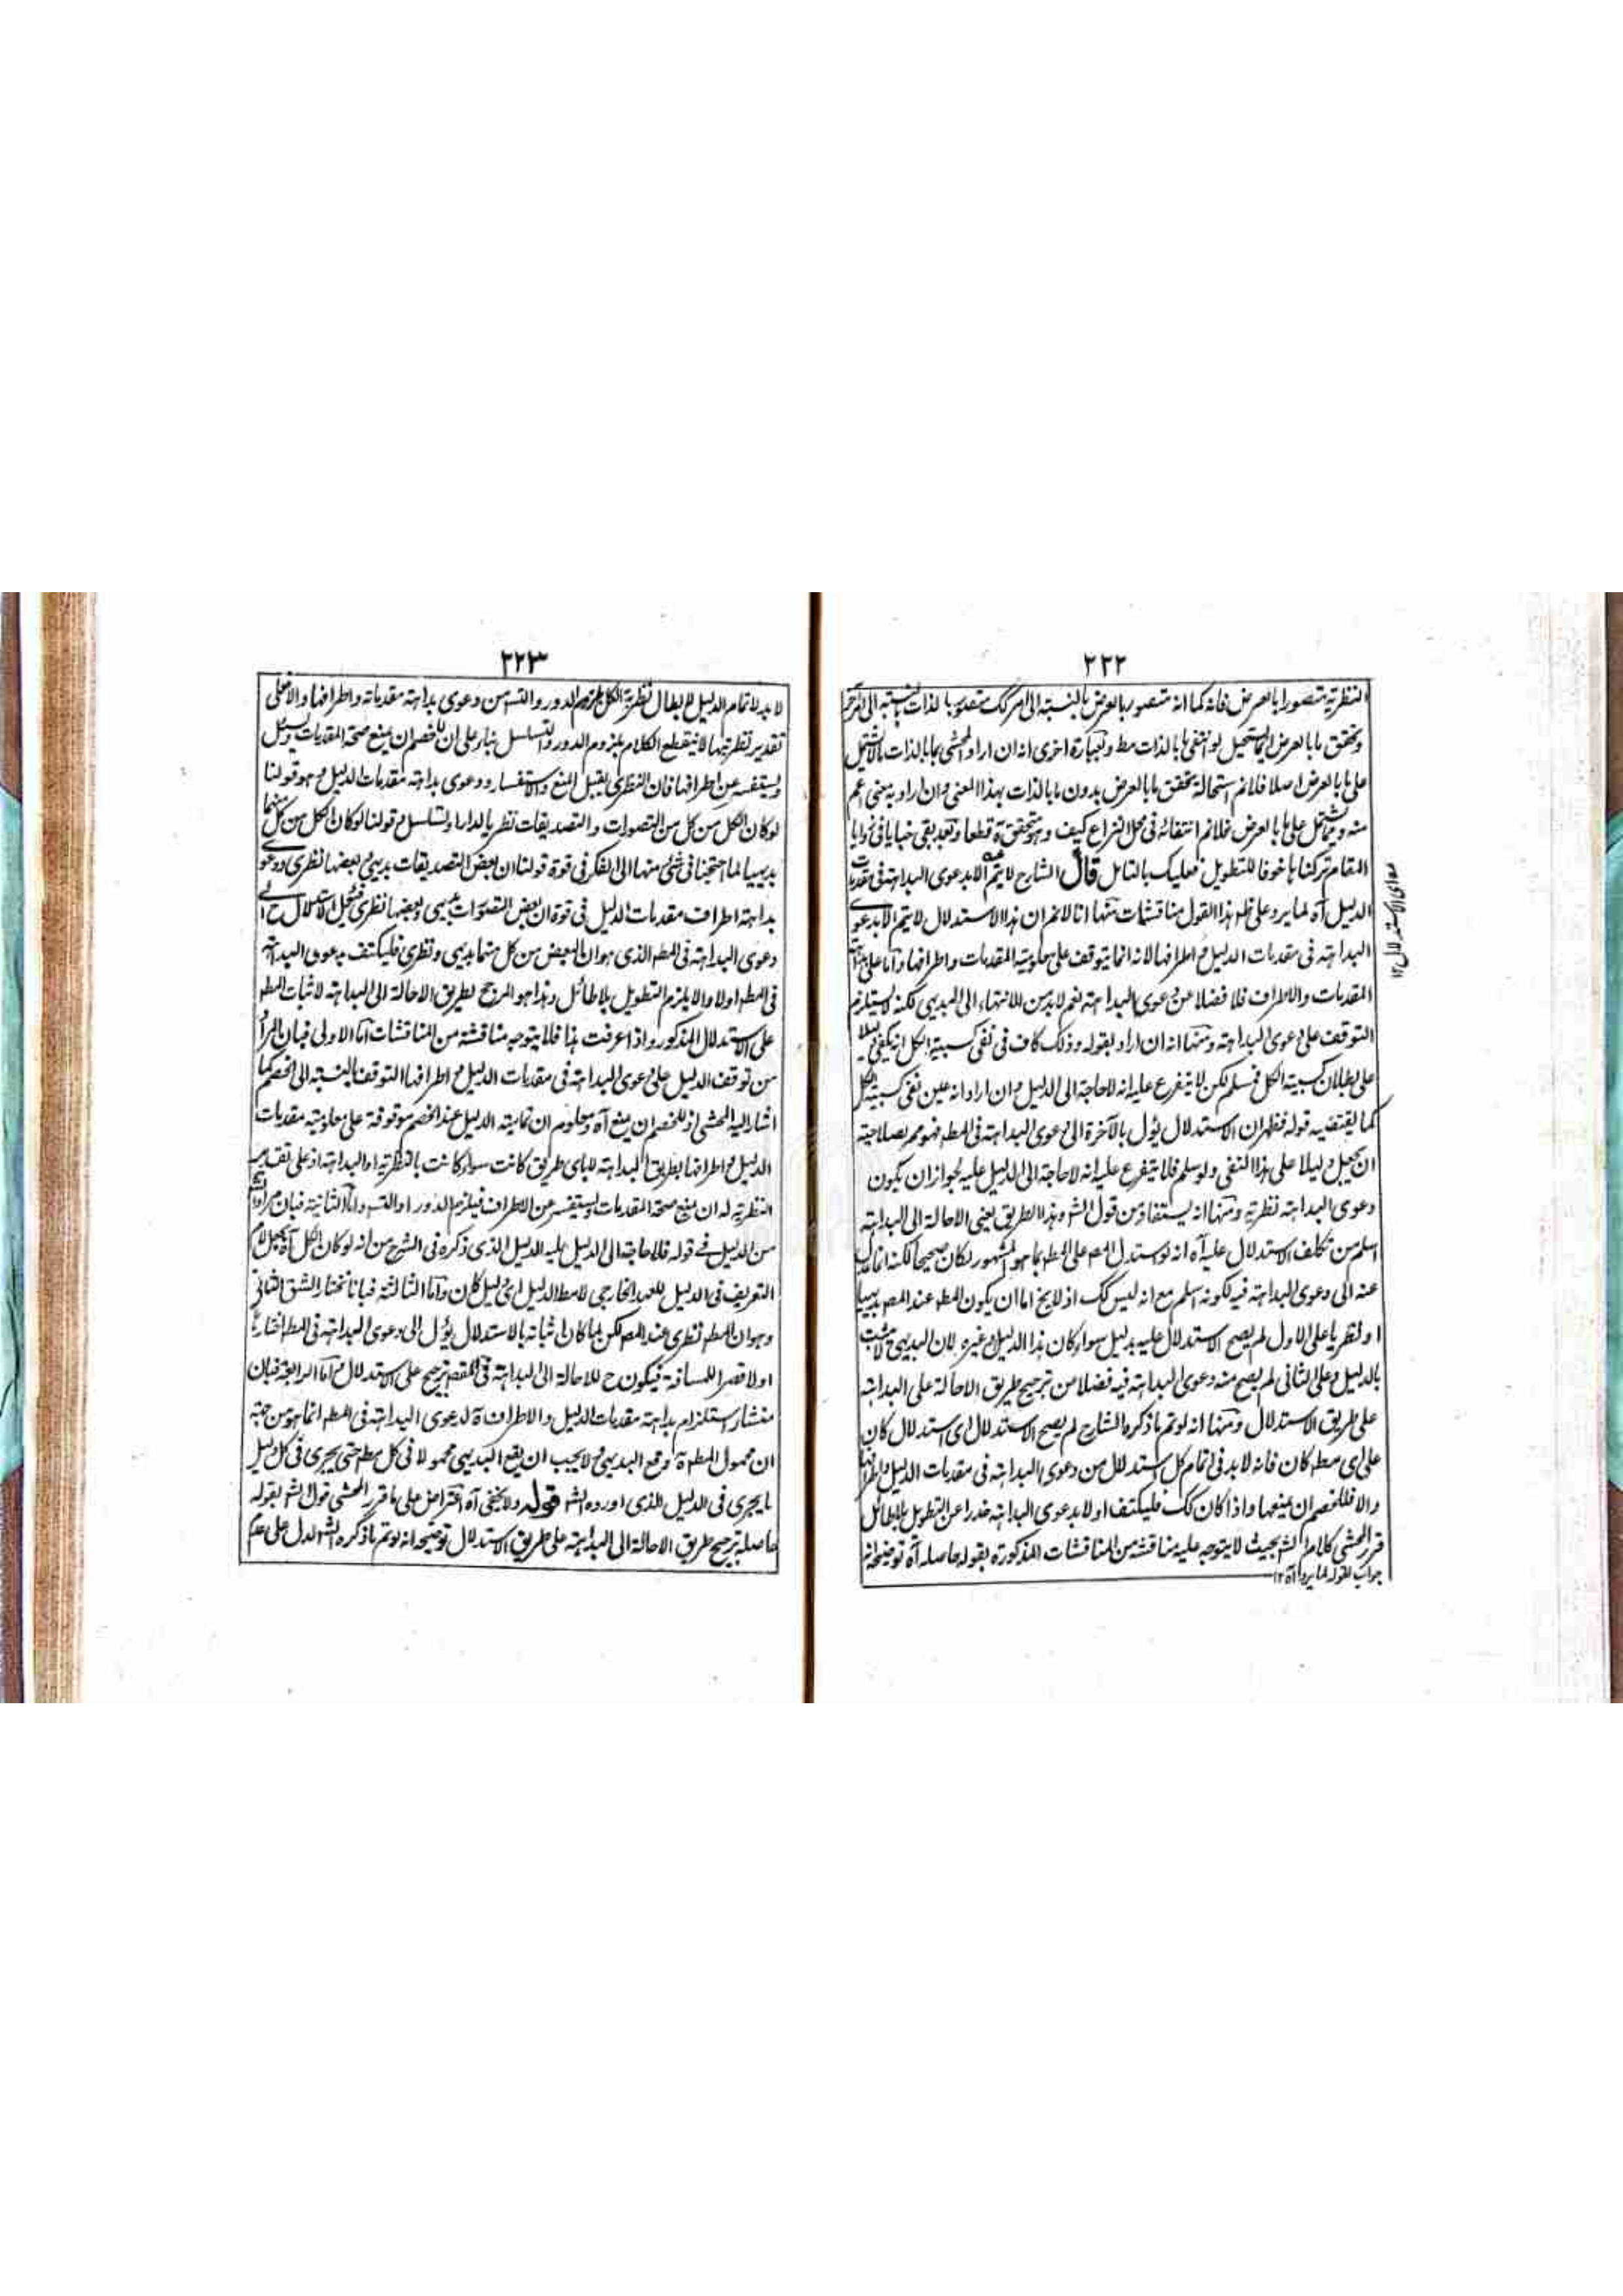 ٢٢٢
النظرية متصورا بالعرض فانه كما انه متصور بالعرض بالنسبة الى امر كك متصور بالذات بالنسبة الى آخر
وتحقق ما بالعرض انما يستحيل لو انتفى ما بالذات مط وبعبارة اخرى انه ان اراد المحشى بما بالذات ما لا يشتمل
على ما بالعرض اصلا فلا نم استحالة تحقق ما بالعرض بدون ما بالذات بهذا المعنى وان اراد به معنى اعم
منه ومما يشتمل على ما بالعرض فلا نم انتفائه فى محل النزاع كيف وهو متحقق قطعا وبعد بقى خبايا فى زوايا
المقام تركناها خوفا للتطويل فعليك بالتامل قال الشارح لا يتم الا بدعوى البداهة فى مقدمات
الدليل آه لما يرد على ظ هذا القول مناقشات منها انا لا نم ان هذا الاستدلال لا يتم الا بدعوى
البداهة فى مقدمات الدليل و اطرافها لانه انما يتوقف على معلومية المقدمات واطرافها واما على بداهة
المقدمات والاطراف فلا فضلا عن دعوى البداهة نعم لا بد من الانتهاء الى البديهى لكنه لا يستلزم
التوقف على دعوى البداهة ومنها انه ان اراد بقوله وذلك كاف فى نفى كسبية الكل انه يكفى دليلا
على بطلان كسبية الكل فمسلم لكن لا يتفرع عليه انه لا حاجة الى الدليل و ان اراد انه عين نفى كسبية الكل
كما يقتضيه قوله فظهر ان الاستدلال يؤل بالآخرة الى دعوى البداهة فى المط فهو مم بصلاحيته
ان يجعل دليلا على هذا النفى ولو سلم فلا يتفرع عليه انه لا حاجة الى الدليل عليه لجواز ان يكون
دعوى البداهة نظرية ومنها انه يستفاد من قول الش وهذا الطريق يعنى الاحالة الى البداهة
اسلم من تكلف الاستدلال عليه آه انه لو استدل المص على المط بما هو المشهور لكان صحيحا لكنه انما عدل
عنه الى دعوى البداهة فيه لكونه اسلم مع انه ليس كك اذ لا يخ اما ان يكون المط عند المص بديهيا
او نظريا على الاول لم يصح الاستدلال عليه بدليل سواء كان هذا الدليل او غيره لان البديهى لا يثبت
بالدليل وعلى الثانى لم يصح منه دعوى البداهة فيه فضلا من ترجيح طريق الاحالة على البداهة
على طريق الاستدلال ومنها انه لو تم ما ذكره الشارح لم يصح الاستدلال اى استدلال كان
على اى مط كان فانه لا بد فى اتمام كل استدلال من دعوى البداهة فى مقدمات الدليل واطرافها
والا فللخصم ان يمنعها واذا كان كك فليكتف اولا بدعوى البداهة حذرا عن التطويل بلا طائل
قرر المحشى كلام الش بحيث لا يتوجه عليه مناقشة من المناقشات المذكورة بقوله حاصله آه توضيحه انه
جواب لقوله لما يرد آه ١٢
سواى الاستدلال ١٢
٢٢٣
لا بد لاتمام الدليل لابطال نظرية الكل بلزوم الدور والتس من دعوى بداهة مقدماته واطرافها والا فعلى
تقدير نظريتها لا ينقطع الكلام بلزوم الدور والتسلسل بناء على ان للخصم ان يمنع صحة المقدمات ويسئل
ويستفسر عن اطرافها فان النظرى يقبل المنع والاستفسار ودعوى بداهة مقدمات الدليل وهو قولنا
لو كان الكل من كل من التصورات والتصديقات نظريا لدار او تسلسل وقولنا لو كان الكل من كل منهما
بديهيا لما احتجنا فى شئ منها الى الفكر فى قوة قولنا ان بعض التصديقات بديهى وبعضها نظرى ودعوى
بداهة اطراف مقدمات الدليل فى قوة ان بعض التصورات بديهى وبعضها نظرى الاستدلال ح الى
دعوى البداهة فى المط الذى هو ان البعض من كل منهما بديهى ونظرى فليكتف بدعوى البداهة
فى المط اولا والا يلزم التطويل بلا طائل وهذا هو المرجح لطريق الاحالة الى البداهة لاثبات المط
على الاستدلال المذكور واذا عرفت هذا فلا يتوجه مناقشة من المناقشات اما الاولى فبان المراد
من توقف الدليل على دعوى البداهة فى مقدمات الدليل و اطرافها التوقف بالنسبة الى الخصم كما
اشار اليه المحشى اذ للخصم ان يمنع آه ومعلوم ان تمامية الدليل عند الخصم موقوفة على معلومية مقدمات
الدليل و اطرافها بطريق البداهة لا باى طريق كانت سواء كانت بالنظرية او البداهة اذ على تقدير
النظرية له ان يمنع صحة المقدمات ويستفسر عن الاطراف فيلزم الدور او التس واما الثانية فبان مراد الش
من الدليل فى قوله فلا حاجة الى الدليل عليه الدليل الذى ذكره فى الشرح من انه لو كان الكل آه يجعل لام
التعريف فى الدليل للعهد الخارجى لا مط الدليل اى دليل كان واما الثالثة فبانا نختار الشق الثانى
وهو ان المط نظرى عند المص لكن لما كان اثباته بالاستدلال يؤل الى دعوى البداهة فى المط اختارها
اولا قصرا للمسافة فيكون ح للاحالة الى البداهة فى المقصد ترجيح على الاستدلال واما الرابعة فبان
منشأ استلزام بداهة مقدمات الدليل والاطراف لدعوى البداهة فى المط انما هو من جهة
ان محمول المط وقع البديهى ولا يجب ان يقع البديهى محمولا فى كل مط حتى يجرى فى كل دليل
ما يجرى فى الدليل الذى اورده الش قوله ولا يخفى آه اعتراض على ما قرر المحشى قول الش بقوله
حاصله ترجيح طريق الاحالة الى البداهة على طريق الاستدلال توضيحه انه لو تم ما ذكره الش لدل على عدم